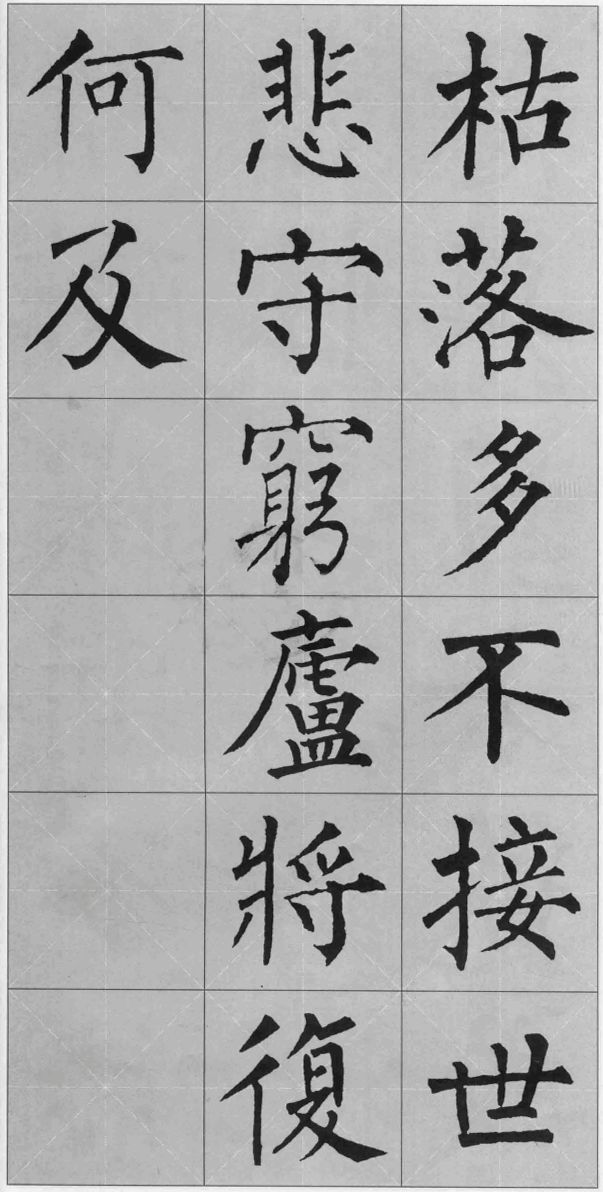 枯落多不接世
悲守窮廬將復
何及